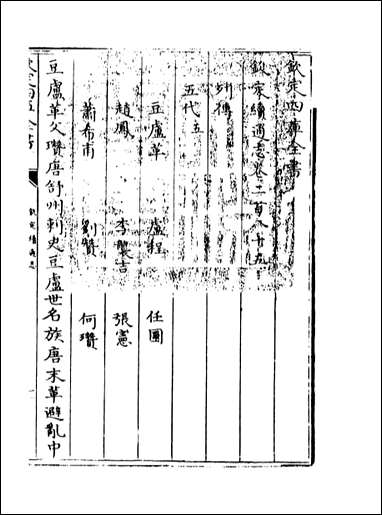 欽定四庫全書
欽定續通志卷二百八十五
列傳
五代五
豆盧革 盧程 任圜
趙鳳 李襲吉 張憲
蕭希甫 劉贊 何瓚
豆盧革父瓚唐舒州刺史豆盧世名族唐末革避亂中
欽定四庫全書
欽定續通志